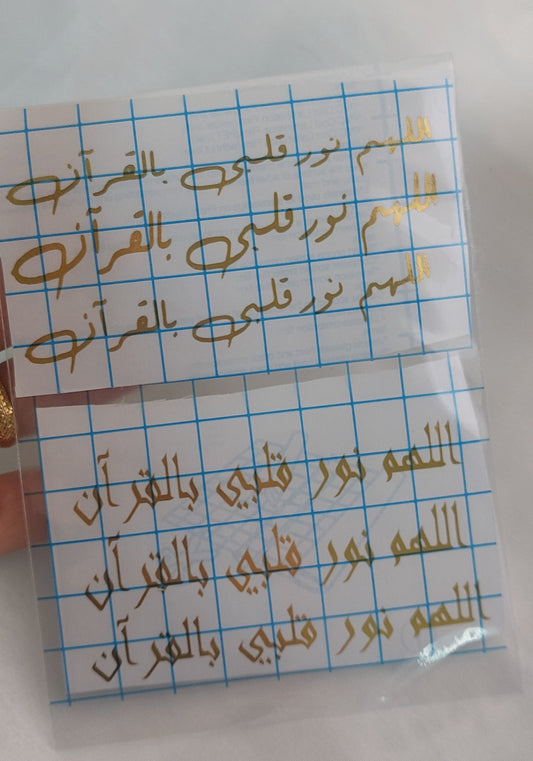 اللهم نور قلبي بالقرآن
اللهم نور قلبي بالقرآن
اللهم نور قلبي بالقرآن
اللهم نور قلبي بالقرآن
اللهم نور قلبي بالقرآن
اللهم نور قلبي بالقرآن